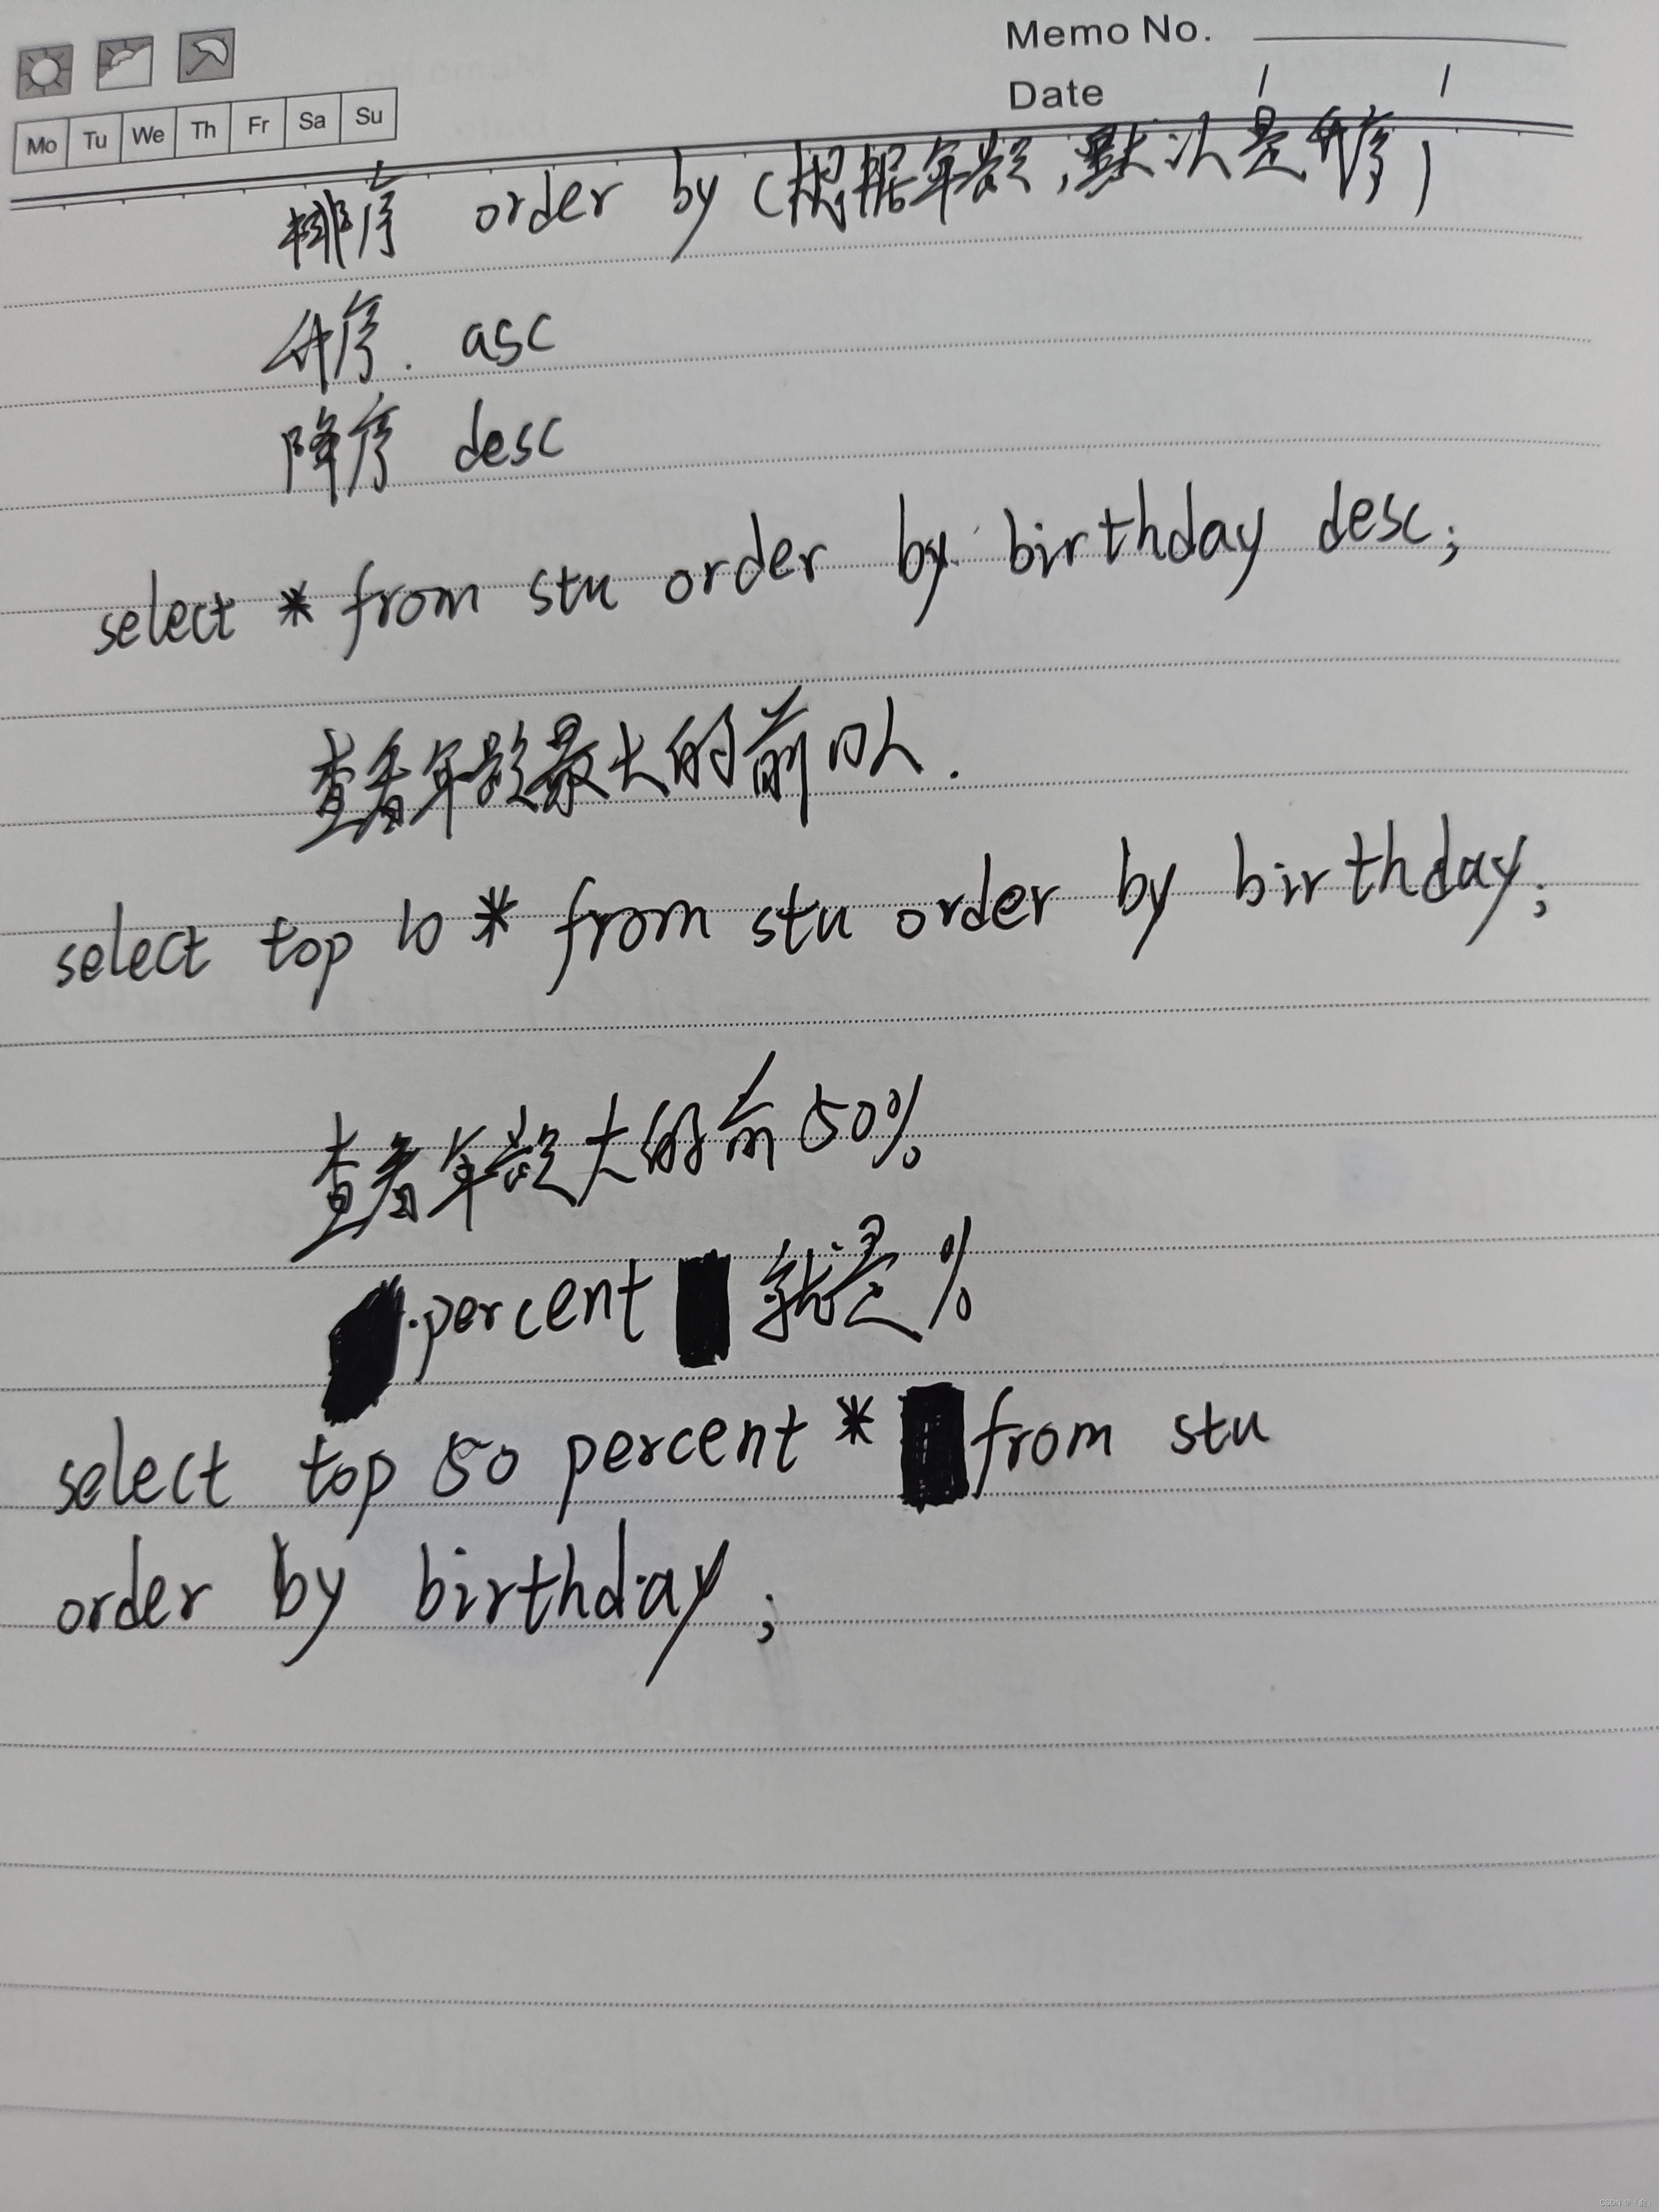 Memo No.
Date / /
Mo Tu We Th Fr Sa Su
排序 order by (根据年龄,默认是升序)
升序. asc
降序 desc
select * from stu order by birthday desc;
查看年龄最大的前10人.
select top 10 * from stu order by birthday;
查看年龄大的前50%
percent 就是%
select top 50 percent * from stu
order by birthday;